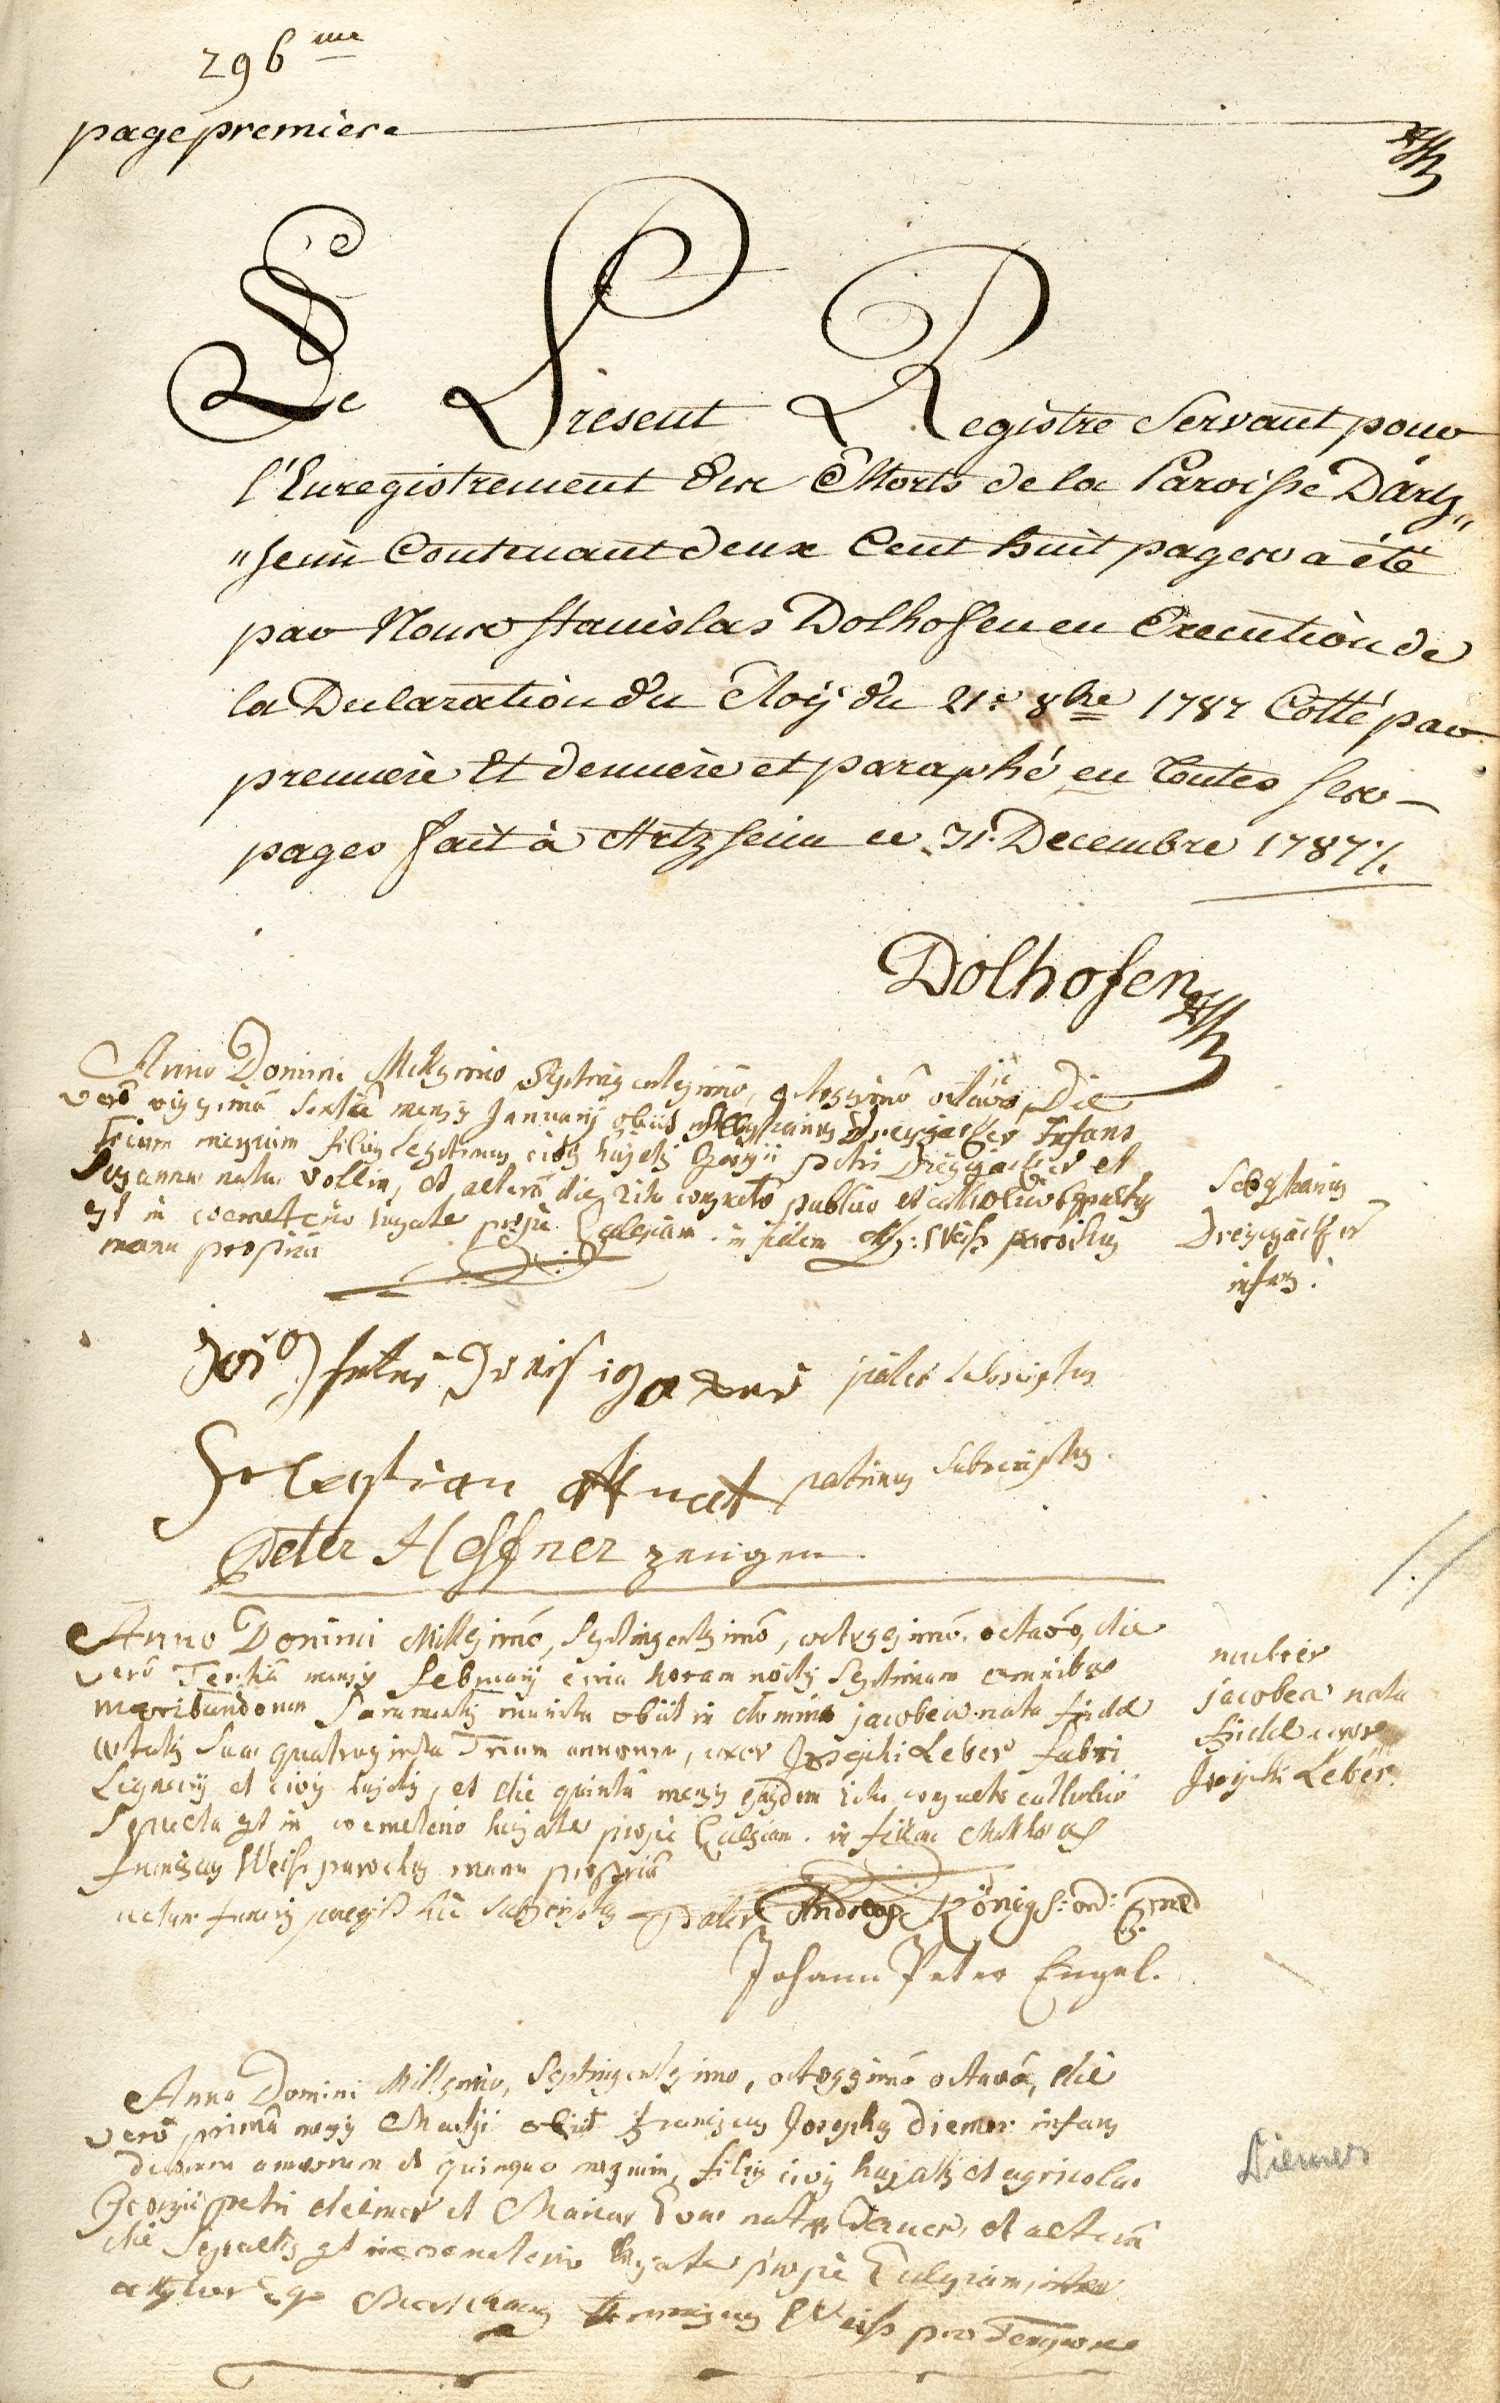 296 me
page premiere
Le Present Registre Servant pour
l'Enregistrement des Morts de la Paroisse D'artz„
„heim Contenant deux Cent huit pages a été
par Nous Stanislas Dolhofen en Execution de
la Declaration du Roÿ du 21e 8bre 1787 Cotté par
premiere Et derniere et paraphé en toutes ses
pages fait à Artzheim ce 31e Decembre 1787 ./.
Dolhofen
Anno Domini Millesimo Septingentesimo, octogesimo octavo, Die
verò vigesimâ Sextâ mensis Januarij obiit Sebastianus Dreÿgäcker Infans
trium mensium filius Legitimus civis hujatis Georgii petri Dreÿgäcker et
Susannæ natæ Vollin, et alterâ die ritu consueto publico et catholico Sepultus
est in coemeterio hujate prope Ecclesiam. in fidem Weiss parochus
manu propriâ
Sebastianus
Dreÿgäcker
infans.
pater subscriptus
Sebastian patrinus Subscriptus.
Peter Heffner zeugen
Anno Domini Millesimo, Septingentesimo, octogesimo octavo, die
verò Tertiâ mensis Februarij circa horam noctis Septimam omnibus
moribundorum Sacramentis munita obiit in domino jacobea nata
ætatis Suæ quadraginta Trium annorum, uxor Josephi Leber fabri
Lignarij et civis hujatis, et die quintâ mensis ejusdem ritu consueto catholico
Sepulta est in coemeterio hujate prope Ecclesiam. in fidem Mathæus
franciscus Weiss parochus manu propriâ
mulier
jacobea nata
uxor
Josephi Leber.
actum funeris peregit hic subscriptus Pater Andreas König S: ord:
Johann Peter Engel.
Anno Domini Millesimo, Septingentesimo, octogesimo octavo, die
verò primâ mensis Martij obiit franciscus Josephus Diemer infans
duorum annorum et quinque mensium, filius civis hujatis et agricolæ
Georgii petri diemer et Mariæ Evæ natæ et alterâ
die Sepultus est in coemeterio hujate prope Ecclesiam, ita
attestor Ego Mathæus franciscus Weiss pro Tempore
Diemer